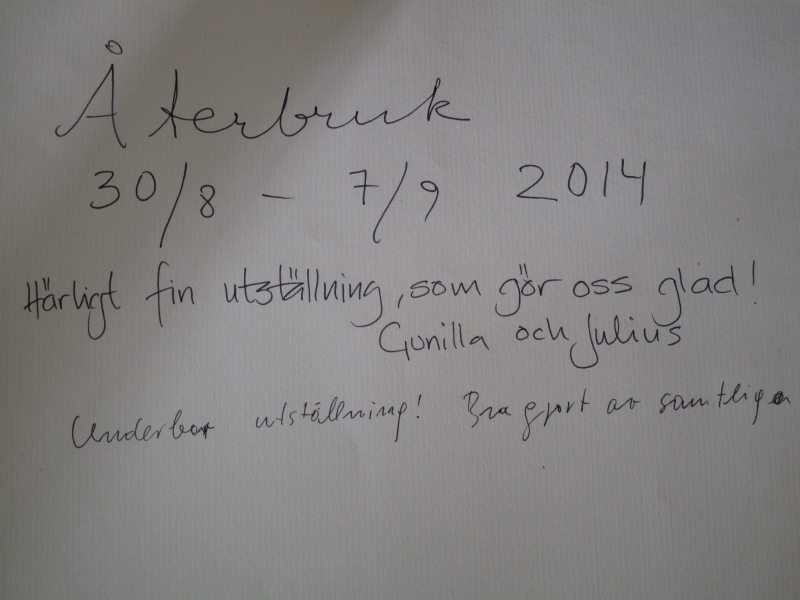 Återbruk
30/8 - 7/9 2014
Härligt fin utställning, som gör oss glad!
Gunilla och Julius
Underbar utställning! Bra gjort av samtliga